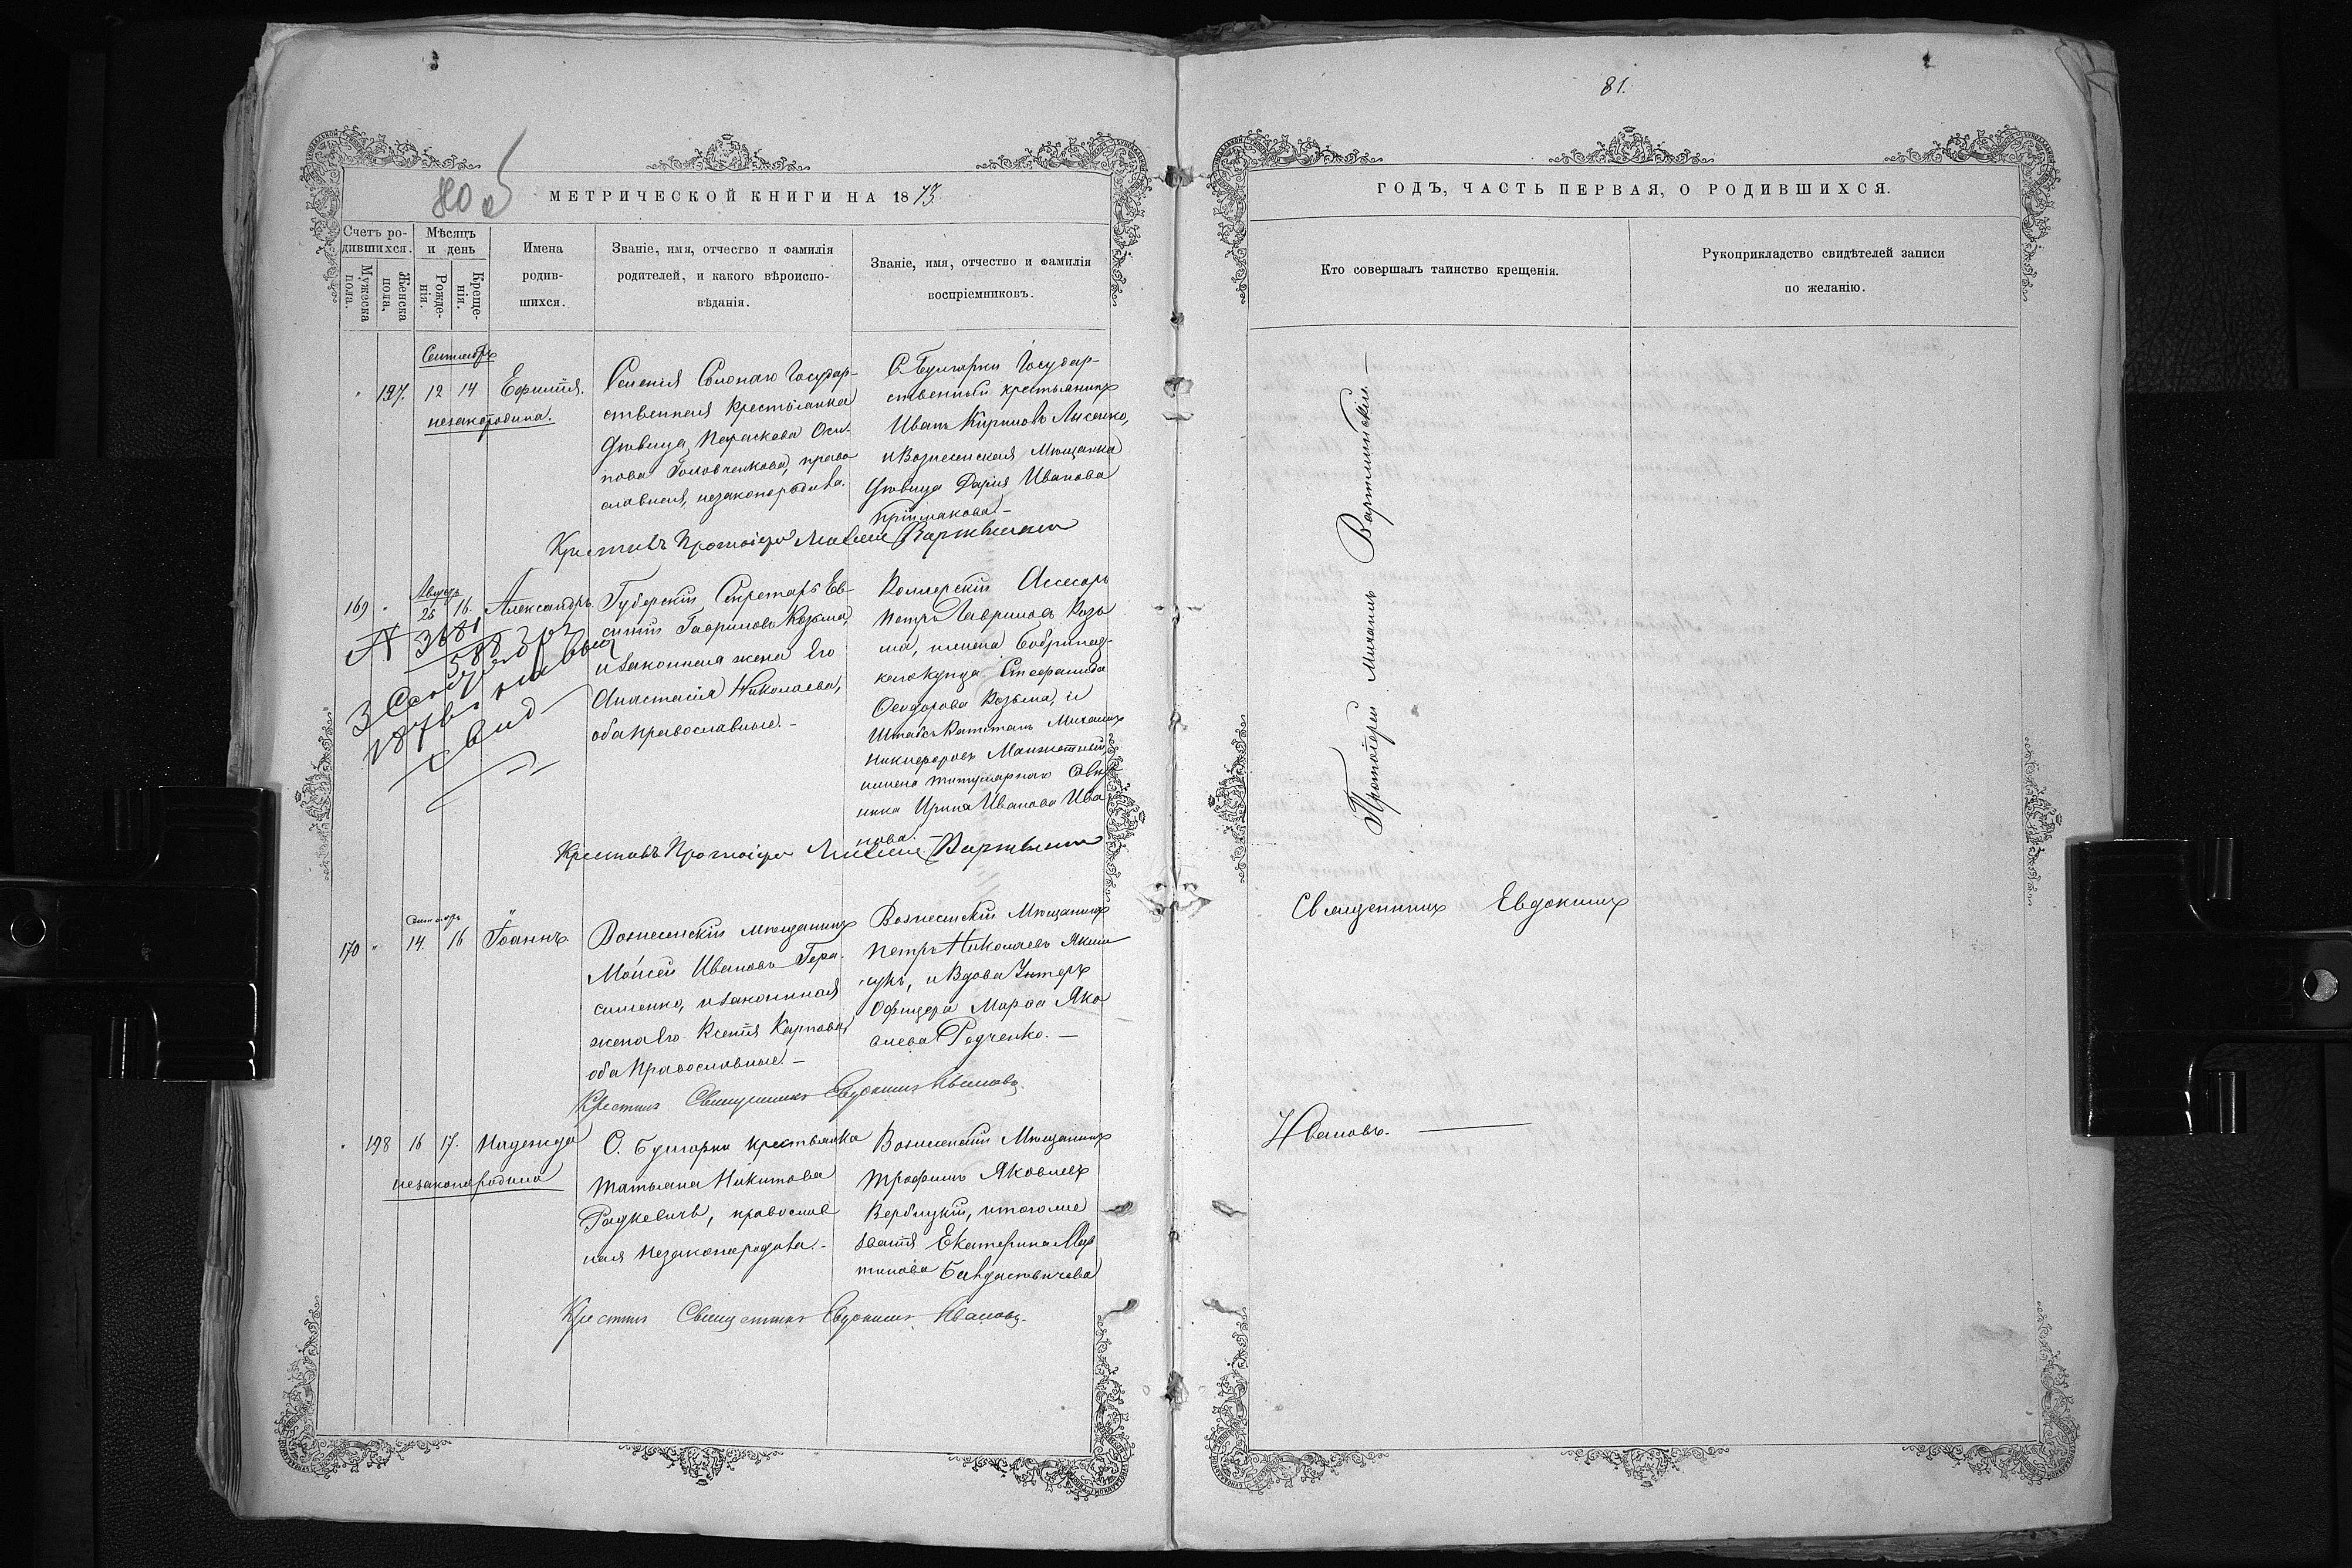 81.
80 об
МЕТРИЧЕСКОЙ КНИГИ НА 1873
Счетъ ро-
дившихся.
Мужеска
пола.
Женска
пола.
Мѣсяцъ
и день
Рожде-
нія.
Креще-
нія.
Имена
родив-
шихся.
Званіе, имя, отчество и фамилія
родителей, и какого вѣроиспо-
вѣданія.
Званіе, имя, отчество и фамилія
воспріемниковъ.
Сентябрь
197. 12 14 Ефимія.
незаконорождена.
Селенія Солонаго Государ-
ственная Крестьянка
Дѣвица Параскева Оси-
пова Головченкова, право
славная, незаконорождена.
С. Булгарки Государ-
ственный крестьянинъ
Иванъ Кириловъ Лисенко,
и Вознесенская Мѣщанка
Дѣвица Дарія Иванова
Пріймакова.-
Крестилъ Протоіерей Михаилъ
Августъ
169 25 16. Александръ
Губерскій Секретарь Ев-
Гавриловъ Козьма,
и законная жена его
Анастасія Николаева,
оба православные.-
Колежскій Асесоръ
Петръ Гавриловъ Козь
ма, Бобринец-
каго Купца Стефанида
Феодорова Козьма, и
Штабсъ Капитанъ Михаилъ
Никифоровъ
Титулярнаго Совѣт
ника Ирина Иванова Ива
нова.-
№ 3681
3
1876
Крестилъ Протоіерей Михаилъ
Сентябрь
170 14. 16 Іоаннъ
Вознесенскій Мѣщанинъ
Моисей Ивановъ Гера-
сименко, и законная
жена его Ксенія Карпова,
оба Православные.-
Вознесенскій Мѣщанинъ
Петръ Николаевъ Яким
чукъ, и Вдова Унтеръ
Офицера Марфа Яко
влева Федченко.-
Крестилъ Священникъ Евдокимъ Ивановъ.
198 16 17. Надежда
незаконорождена
С. Булгарки Крестьянка
Татьяна Никитова
Радкевичъ, православ
ная незаконорождена.-
Вознесенскій Мѣщанинъ
Трофимъ Яковлевъ
Вербицкій, и тогоже
званія Екатерина Мар
тинова
Крестилъ Священникъ Евдокимъ Ивановъ.
ГОДЪ, ЧАСТЬ ПЕРВАЯ, О РОДИВШИХСЯ.
Кто совершалъ таинство крещенія.
Рукоприкладство свидѣтелей записи
по желанію.
Протоіерей Михаилъ
Священникъ Евдокимъ
Ивановъ.